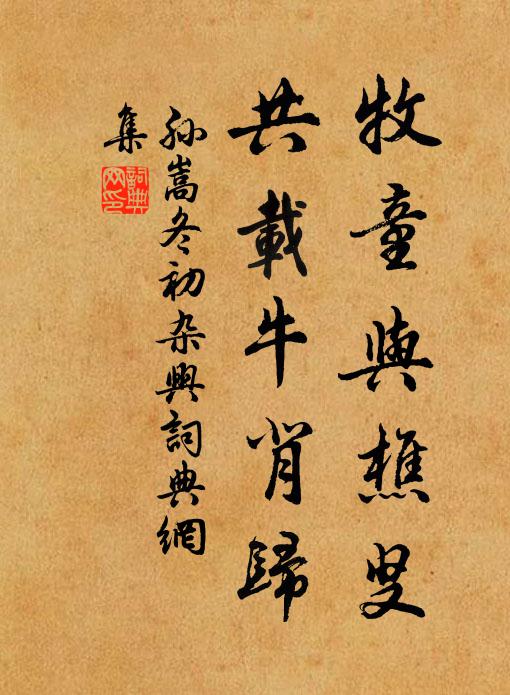 牧童與樵叟
共載牛背歸
孫嵩冬初杂興詞典網
集
詞典
网印